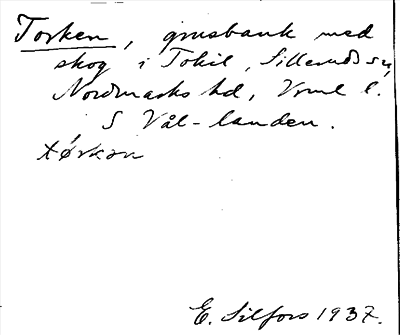 Torken, grusbank med
skog i Tokil, Silleruds sn,
Nordmarks hd, Vrml l.
S Vål-landen.
tørkan
E. Silfors 1937.